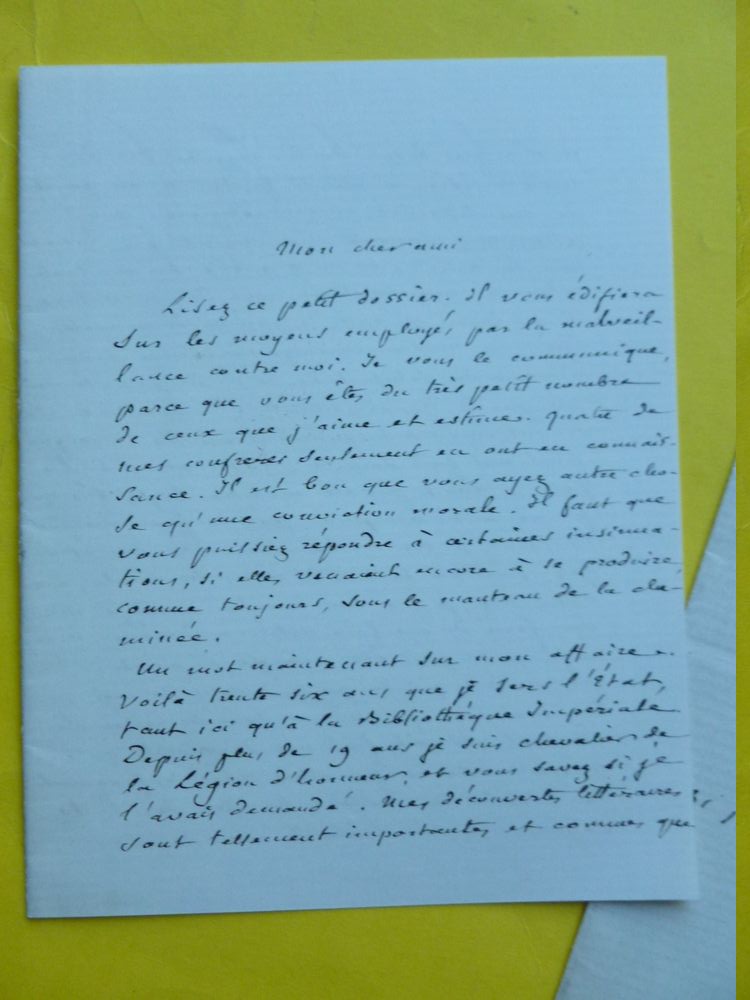 Mon cher ami
Lisez ce petit dossier. Il vous édifiera
sur les moyens employés par la malveil-
lance contre moi. Je vous le communique,
parce que vous êtes du très petit nombre
de ceux que j'aime et estime. Quatre de
mes confrères seulement en ont eu connais-
sance. Il est bon que vous ayez autre cho-
se qu'une conviction morale. Il faut que
vous puissiez répondre à certaines insinua-
tions, si elles venaient encore à se produire,
comme toujours, sous le manteau de la che-
minée.
Un mot maintenant sur mon affaire.
Voilà trente six ans que je sers l'État,
tant ici qu'à la Bibliothèque Impériale.
Depuis plus de 19 ans je suis chevalier de
la Légion d'honneur, et vous savez si je
l'avais demandé. Mes découvertes littéraires
sont tellement importantes et connues que